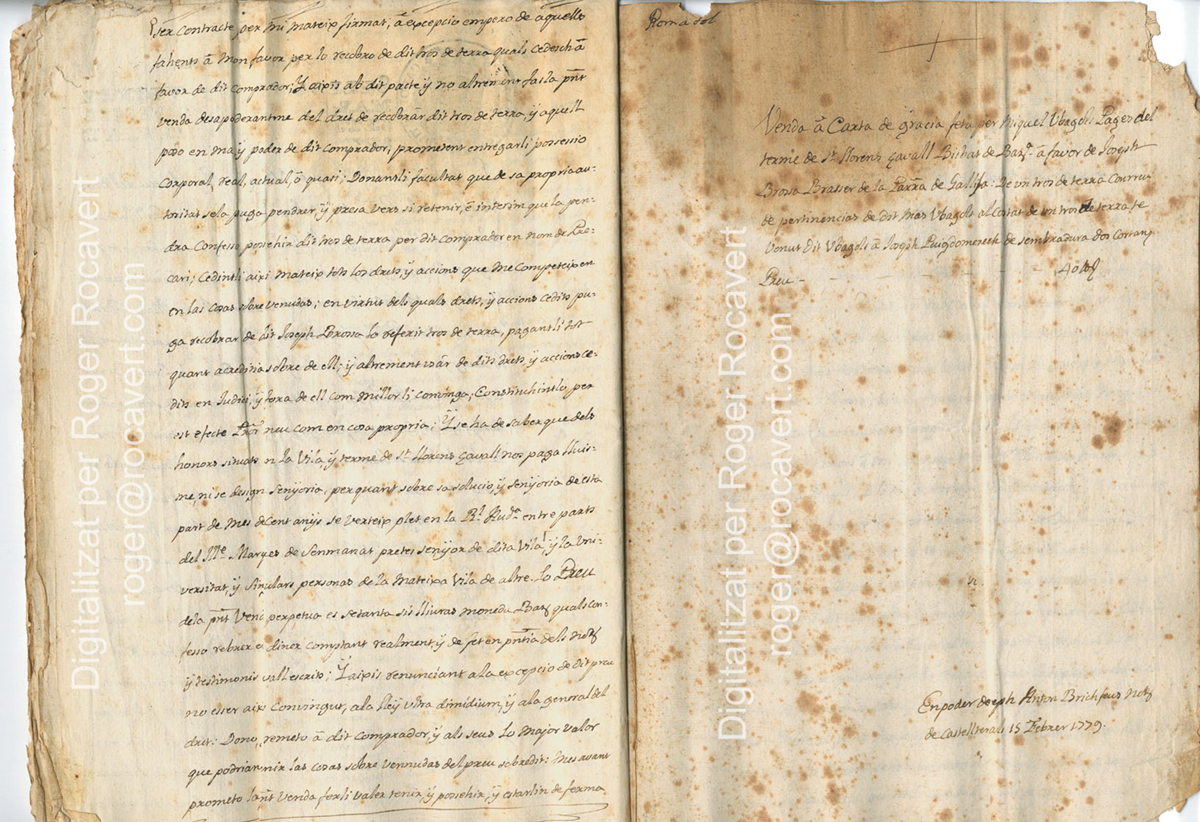 per contracte per mi mateix firmat, â excepcio empero de aquells
fahents â mon favor per lo recobro de dit tros de terra quals cedesch â
favor de dit comprador; Y aixis ab dit pacte y no altrement fas la pnt
venda desapoderantme del dret de recobrar dit tros de terra, y aquell
poso en ma y poder de dit comprador, prometent entregarli possessio
corporal, real, actual, ô quasi; Donantli facultat que de sa propria au-
toritat se la puga pendrer, y presa vers si retenir, ê interim que la pen-
dra Confesso possehir dit tros de terra per dit comprador en nom de Pre-
cari; Cedintli aixi mateix tots los drets, y accions que me Competeixen
en las cosas sobre venudas; en virtut dels quals drets, y accions cedits pu-
ga recobrar de dit Joseph Brossa lo referit tros de terra, pagantli tot
quant acredita sobre de ell; y altrement usâr de dits drets, y accions ce-
dits en Judici, y fora de ell com millor li convinga; Constituhintlo per
est efecte Pror neu com en cosa propria: Y se ha de saber que dels
honors situats en la Vila, y terme de St. Llorens Çavall nos paga lluis-
me, ni se design senyoria, per quant sobre sa solucio, y senyoria de esta
part de mes de Cent anys se verteix plet en la Rl. Auda. entre parts
del Ille. Marques de Senmanat pretes senyor de dita Vila, y la Uni-
versitat, y singulars personas de la mateixa Vila de altre. Lo Preu
de la pnt Vend perpetua es setanta sis lliuras moneda Barsa quals con-
fesso rebrer a diner comptant realment, y de fet en pntia dels Notr
y testimonis vall escrits; Y aixis renunciant a la excepcio de dit preu
no esser aix Convingut, a la lley ultra dimidium, y a la general del
dret: Dono, remeto â dit comprador, y als seus lo major valor
que podrian tenir las cosas sobre vennudas del preu sobredit: Mes avant
prometo la pnt Venda ferli valer tenir, y possehir, y estarlin de ferma
Venda â Carta de gracia feta per Miquel Ubagols Pages del
terme de St. Llorens Çavall Bisbat de Barna. â favor de Joseph
Brosa Brasser de la Parra. de Gallifa: De un tros de terra
de pertinencias de dit mas Ubagols al costat de un tros de terra te
Venut dit Ubagols â Joseph Puigdomenech de sembradura dos cortans.
Preu - - - - 40 ll
En poder de Joseph Anton Brichfeus Notr
de Castelltersol â 15 Febrer 1779.
Digitalitzat per Roger Rocavert
roger@rocavert.com
Digitalitzat per Roger Rocavert
roger@rocavert.com